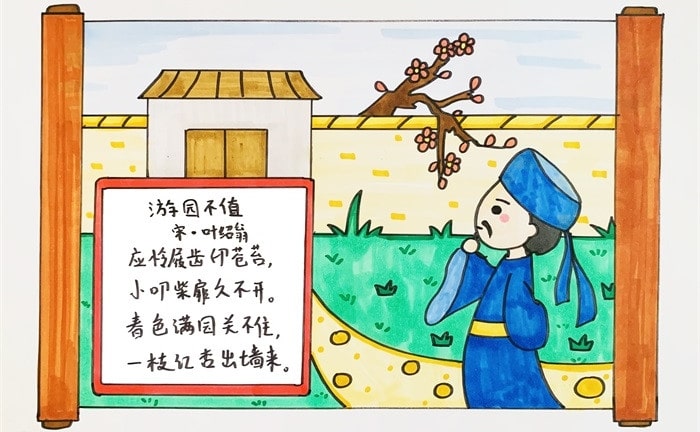 游园不值
宋·叶绍翁
应怜屐齿印苍苔,
小叩柴扉久不开。
春色满园关不住,
一枝红杏出墙来。